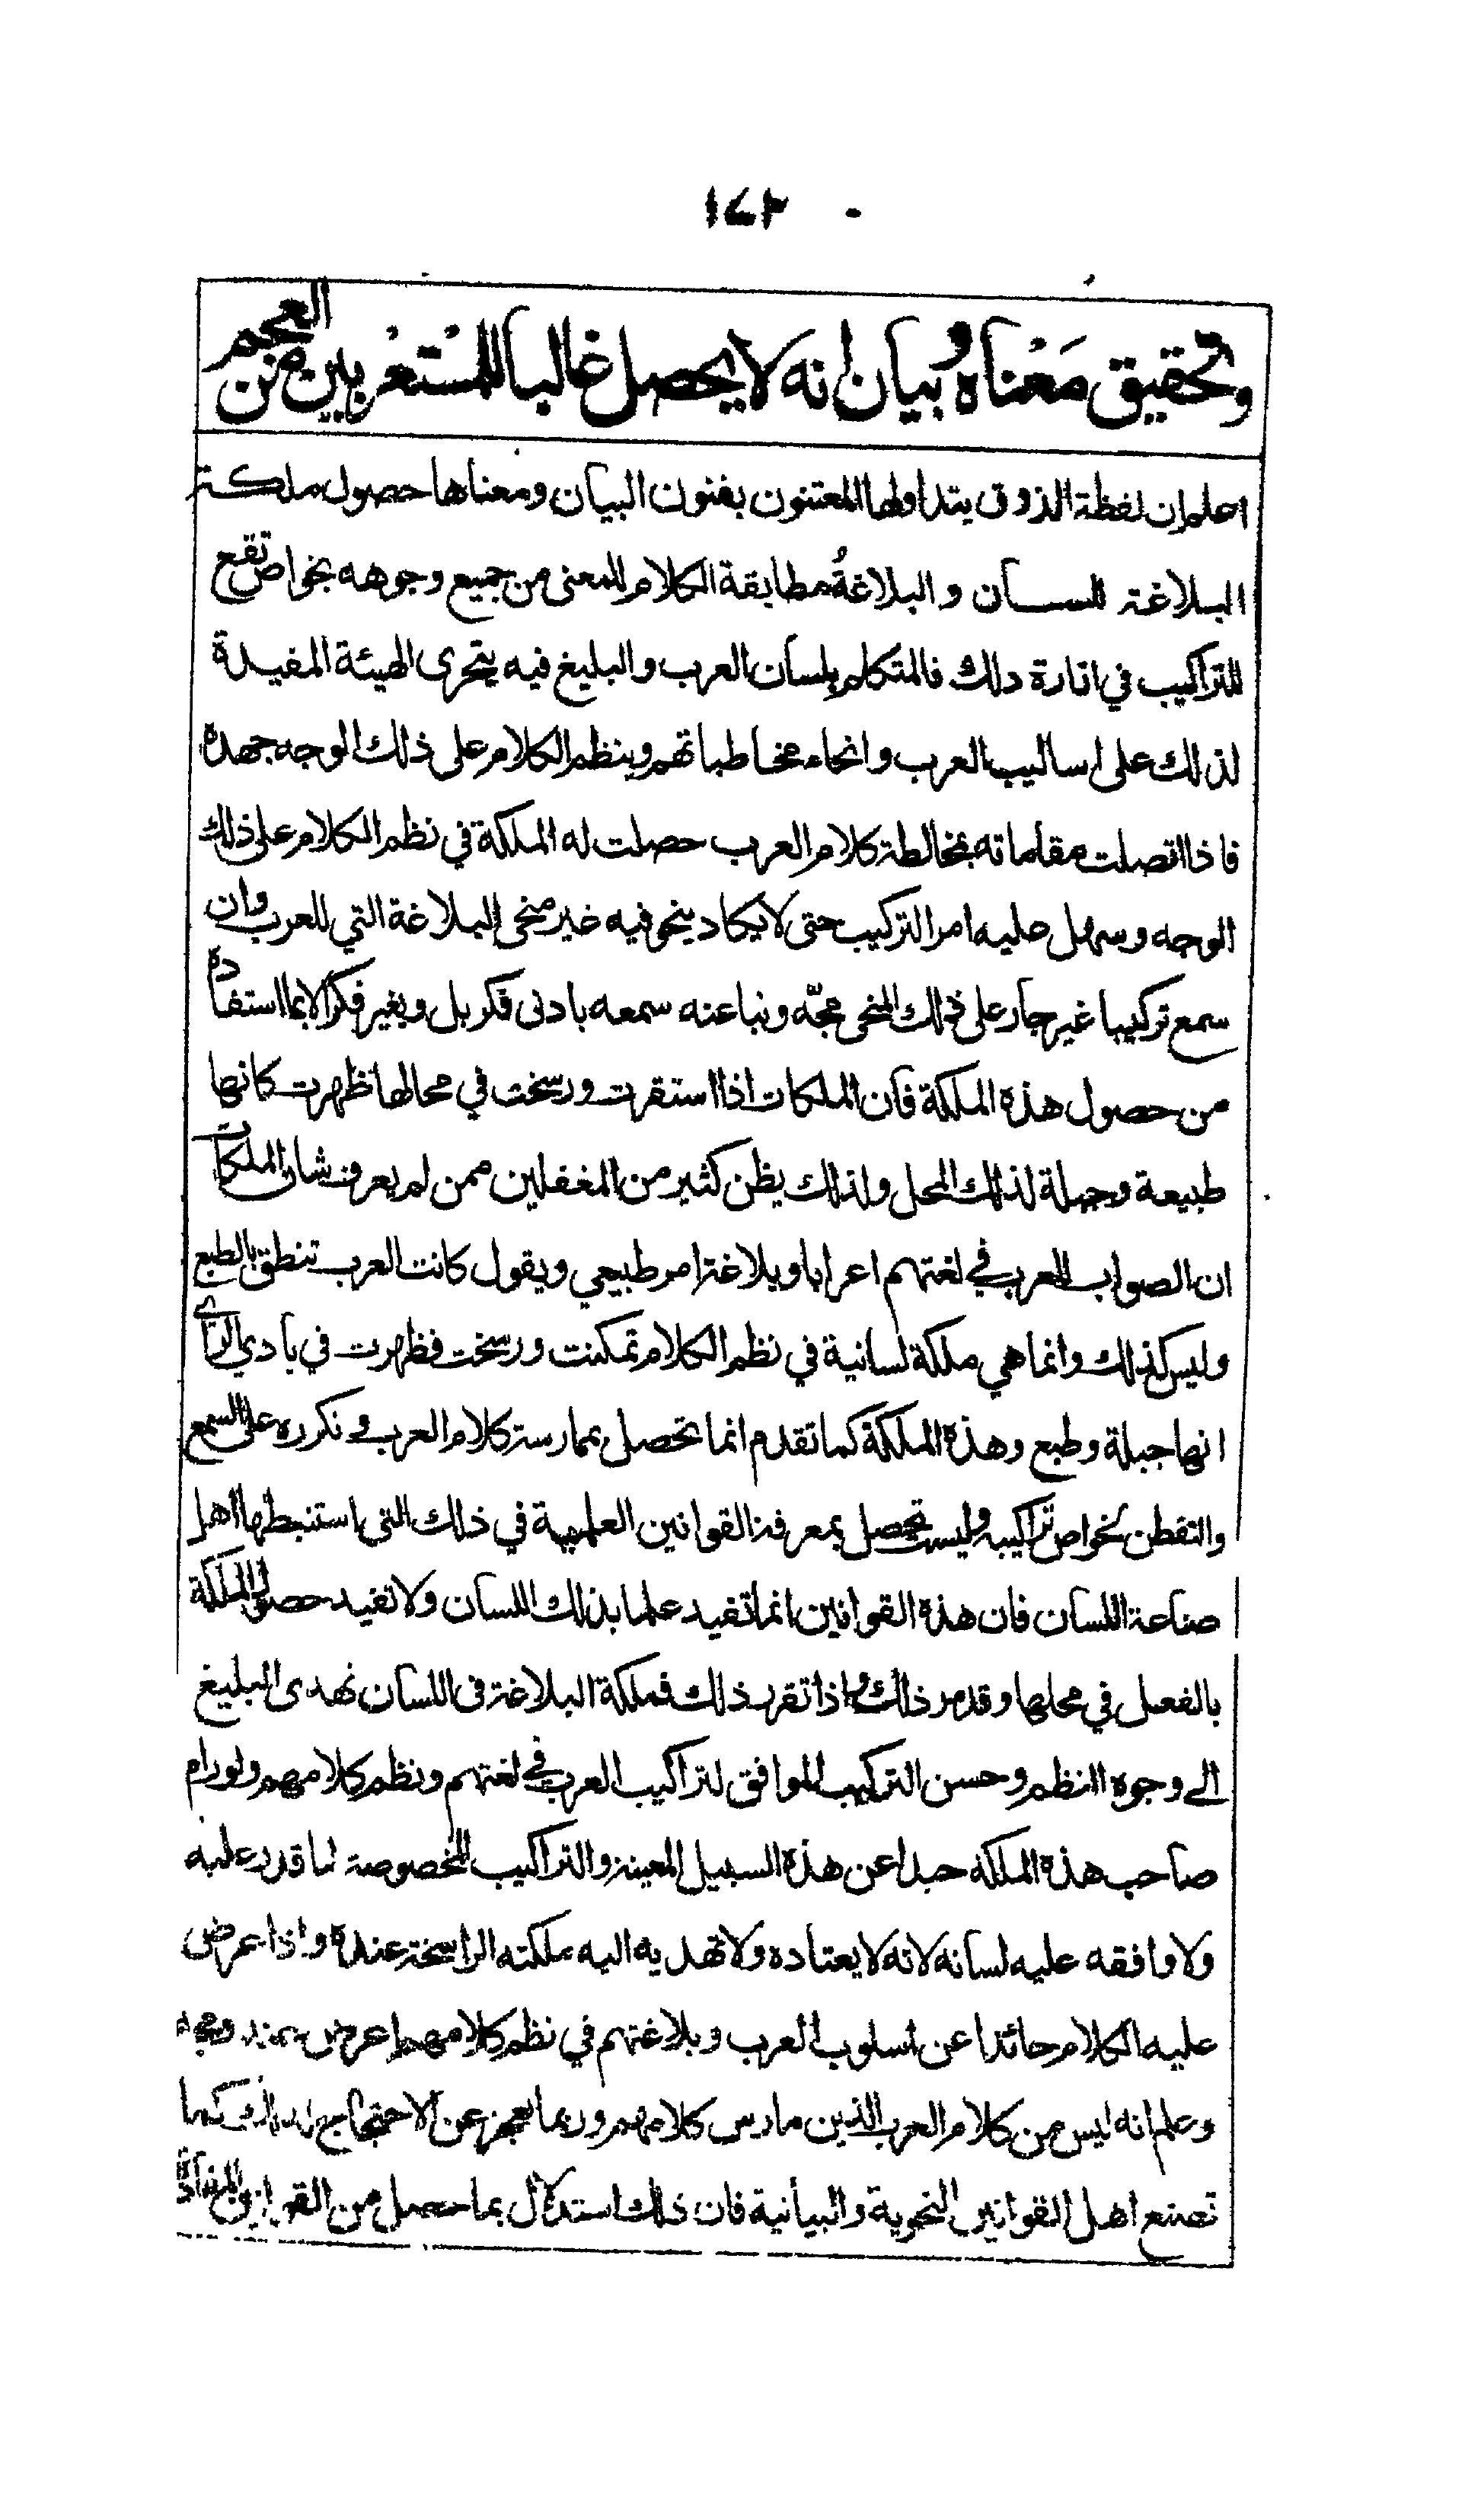 ١٤٣
وتحقيق معناه وبيان انه لا يحصل غالبا للمستعربين من العجم
اعلم ان لفظة الذوق يتداولها المعتنون بفنون البيان ومعناها حصول ملكة
البلاغة للسان والبلاغة مطابقة الكلام للمعنى من جميع وجوهه بخواص تقع
للتراكيب في افادة ذلك فالمتكلم بلسان العرب والبليغ فيه يتحرى الهيئة المفيدة
لذلك على اساليب العرب وانحاء مخاطباتهم وينظم الكلام على ذلك الوجه جهده
فاذا اتصلت مقاماته بمخالطة كلام العرب حصلت له الملكة في نظم الكلام على ذلك
الوجه وسهل عليه امر التركيب حتى لا يكاد ينحو فيه غير منحى البلاغة التي للعرب وان
سمع تركيبا غير جار على ذلك المنحى مجّه ونبا عنه سمعه بادنى فكر بل وبغير فكر الا بما استفاده
من حصول هذه الملكة فان الملكات اذا استقرت ورسخت في محالها ظهرت كانها
طبيعة وجبلة لذلك المحل ولذلك يظن كثير من المغفلين ممن لم يعرف شان الملكات
ان الصواب للعرب في لغتهم اعرابا وبلاغة امر طبيعي ويقول كانت العرب تنطق بالطبع
وليس كذلك وانما هي ملكة لسانية في نظم الكلام تمكنت ورسخت فظهرت في بادي الراي
انها جبلة وطبع وهذه الملكة كما تقدم انما تحصل بممارسة كلام العرب و تكرره على السمع
والتفطن لخواص تراكيبه وليست تحصل بمعرفة القوانين العلمية في ذلك التي استنبطها اهل
صناعة اللسان فان هذه القوانين انما تفيد علما بذلك اللسان ولا تفيد حصول الملكة
بالفعل في محلها وقد مر ذلك واذا تقرر ذلك فملكة البلاغة في اللسان تهدى البليغ
الى وجوه النظم وحسن التركيب الموافق لتراكيب العرب في لغتهم ونظم كلامهم ولو رام
صاحب هذه الملكة حيدا عن هذه السبيل المعينة والتراكيب المخصوصة لما قدر عليه
ولا وافقه عليه لسانه لانه لا يعتاده ولا تهديه اليه ملكته الراسخة عنده واذا عرض
عليه الكلام حائدا عن اسلوب العرب وبلاغتهم في نظم كلامهم اعرض عنه ومجه
وعلم انه ليس من كلام العرب الذين مارس كلامهم وربما يعجز عن الاحتجاج لذلك كما
تصنع اهل القوانين النحوية والبيانية فان ذلك استدلال بما حصل من القوانين المفادة